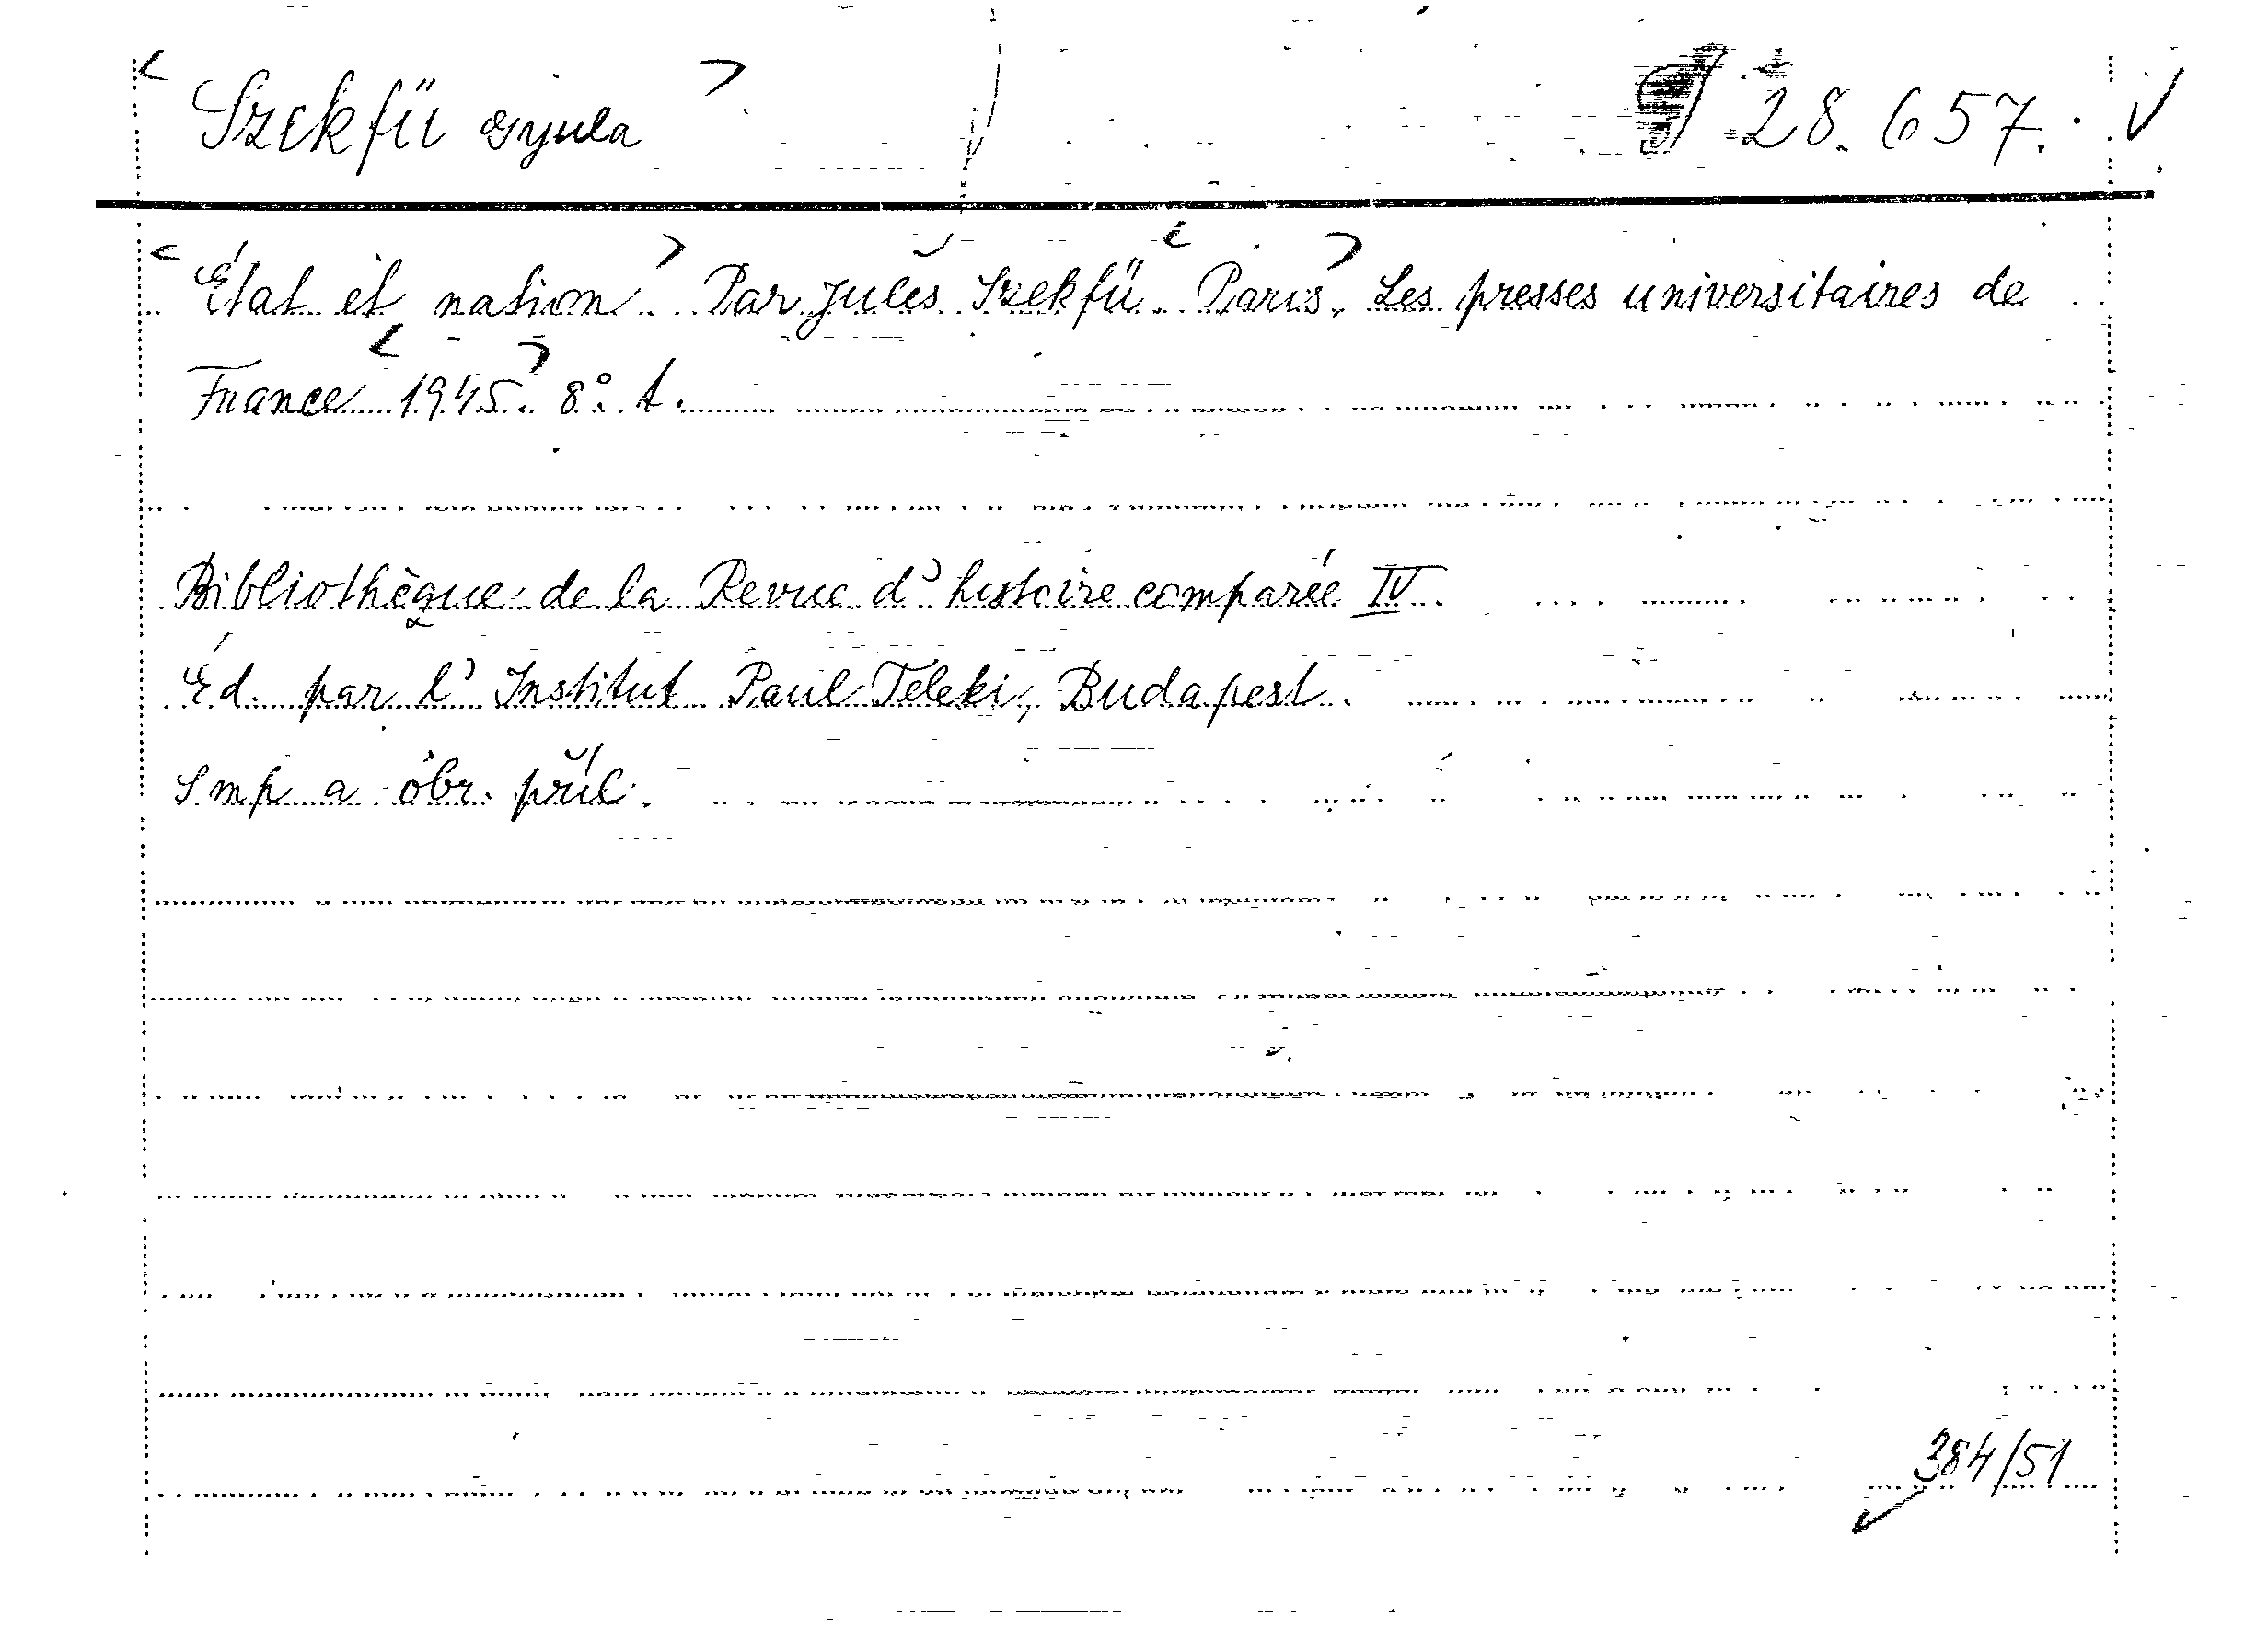 Szekfü Gyula 28.657.
État et nation. Par Jules Szekfü. Paris, Les presses universitaires de
France 1945. 8°. t.
Bibliothèque de la Revue d'histoire comparée IV.
Éd. par l'Institut Paul Teleki, Budapest.
S mp a obr. příl.
384/51